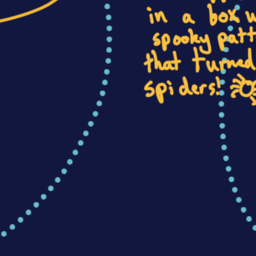 in a box
spooky
that turned
spiders!